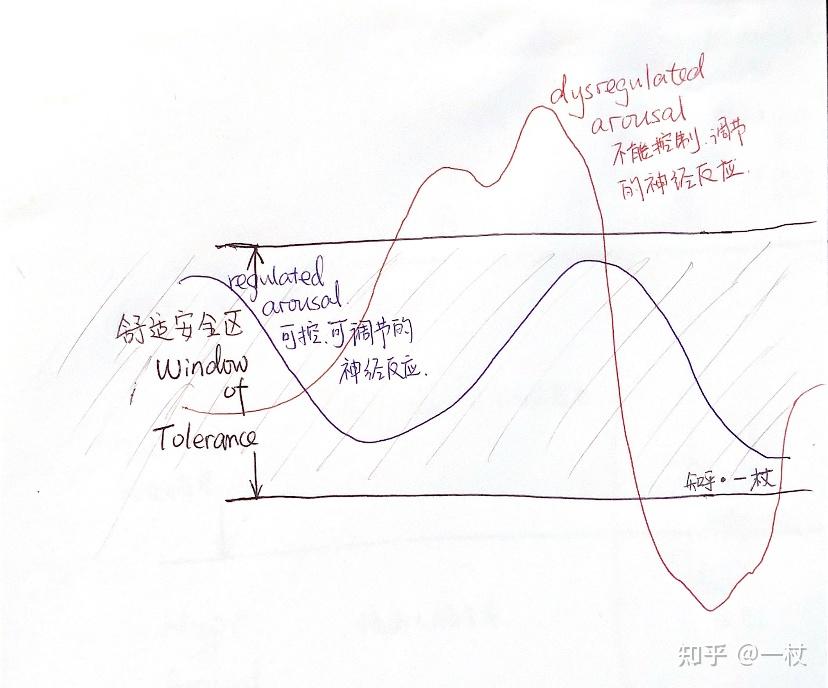 dysregulated
arousal
不能控制、调节
的神经反应.
regulated
arousal.
可控、可调节的
神经反应.
舒适安全区
Window
of
Tolerance
知乎·一杖
知乎 @一杖